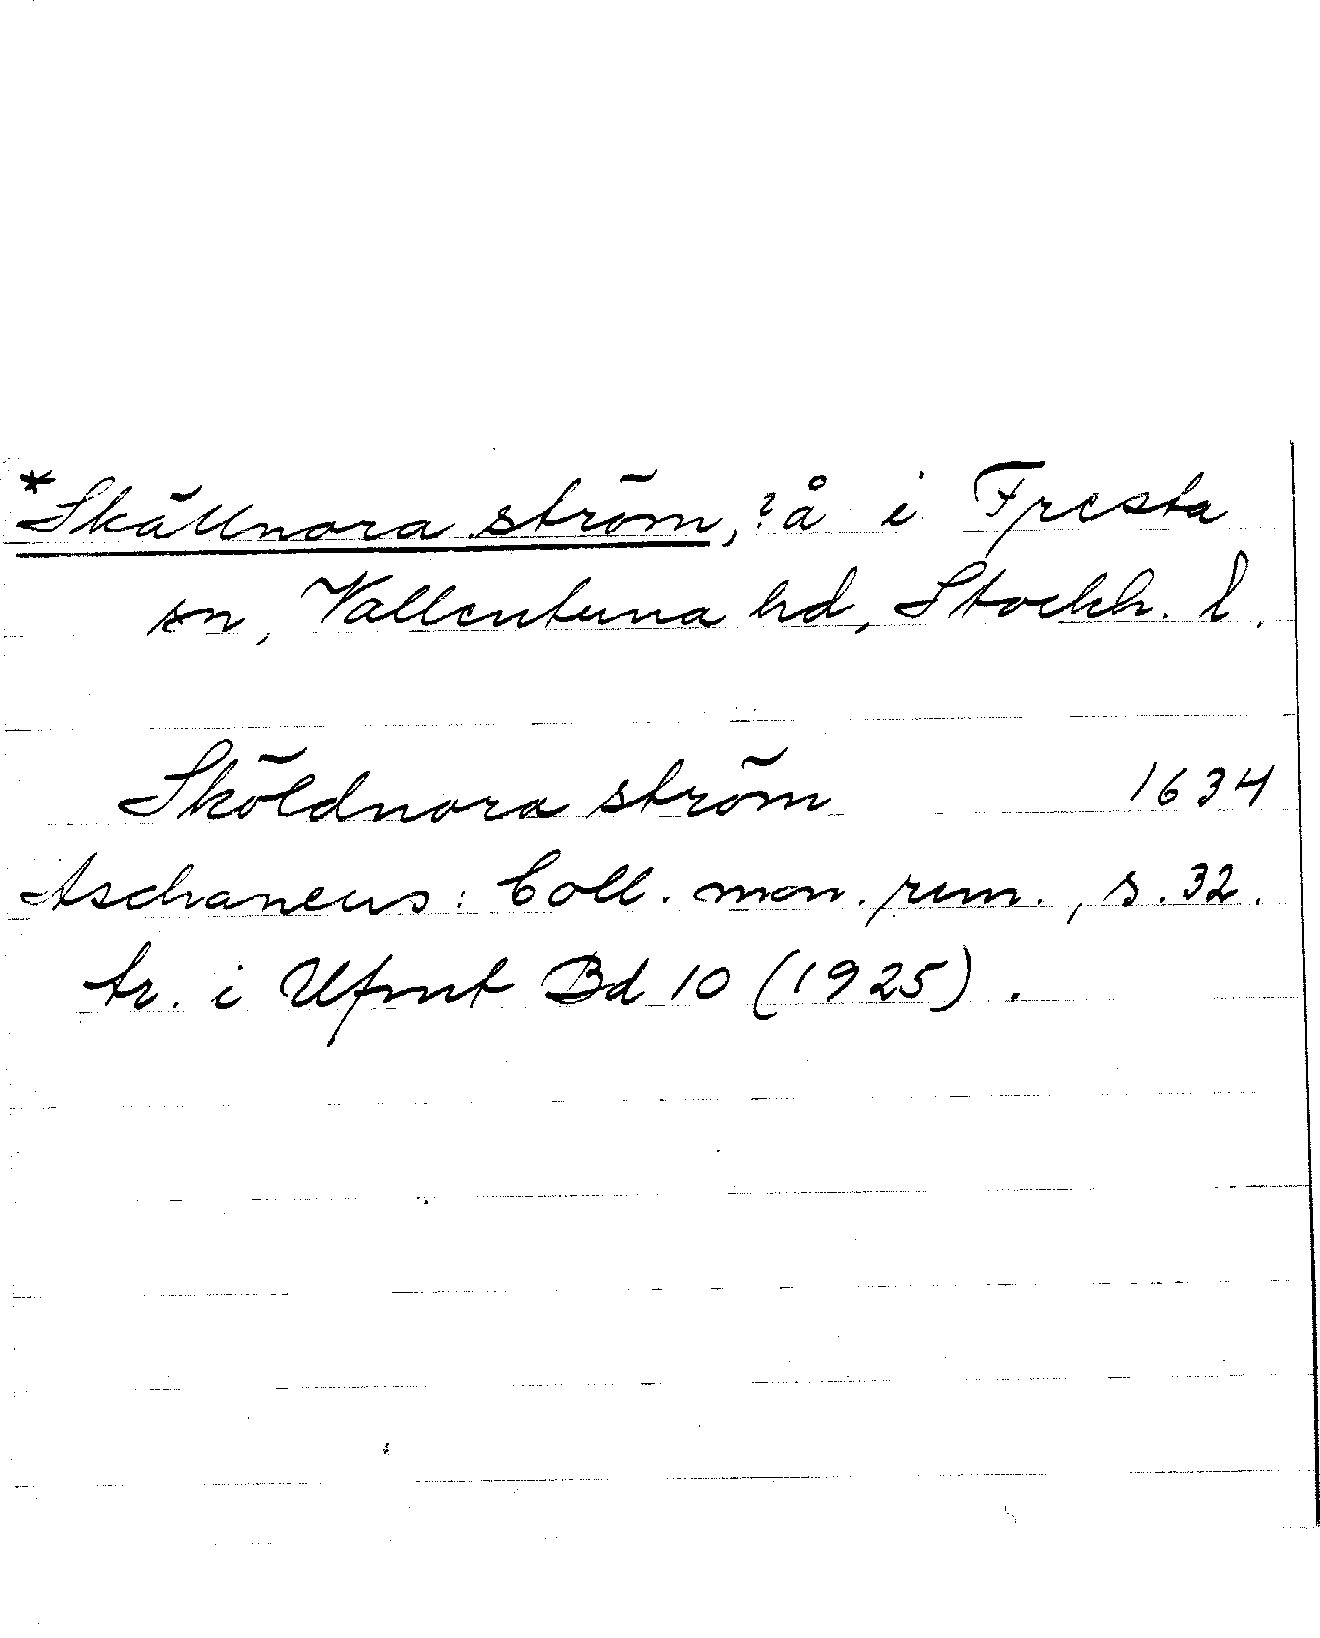 *Skällnora ström, ?å i Fresta
sn, Vallentuna hd, Stockh. l.
Sköldnora ström 1634
Aschaneus: Coll. mon. run., s. 32.
tr. i Ufmt Bd 10 (1925).